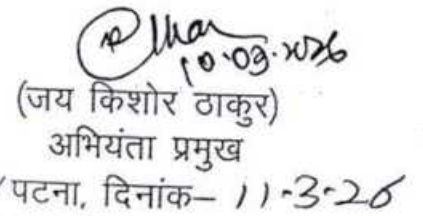 10.03.2026
(जय किशोर ठाकुर)
अभियंता प्रमुख
पटना, दिनांक– 11-3-26